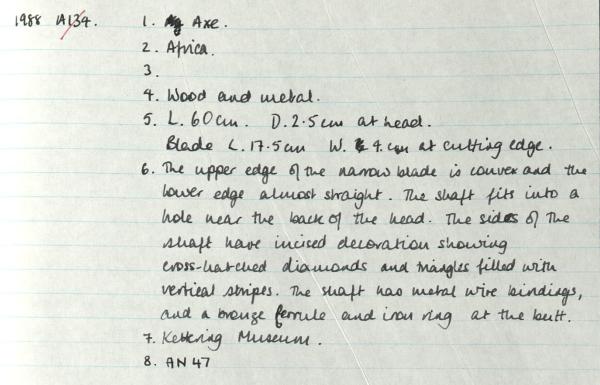 1988 A134. 1. Axe.
2. Africa.
3.
4. Wood and metal.
5. L. 60cm. D. 2.5cm at head.
Blade L. 17.5cm W. 4.cm at cutting edge.
6. The upper edge of the narrow blade is convex and the
lower edge almost straight. The shaft fits into a
hole near the back of the head. The sides of the
shaft have incised decoration showing
cross-hatched diamonds and triangles filled with
vertical stripes. The shaft has metal wire bindings,
and a bronze ferrule and iron ring at the butt.
7. Kettering Museum.
8. AN47